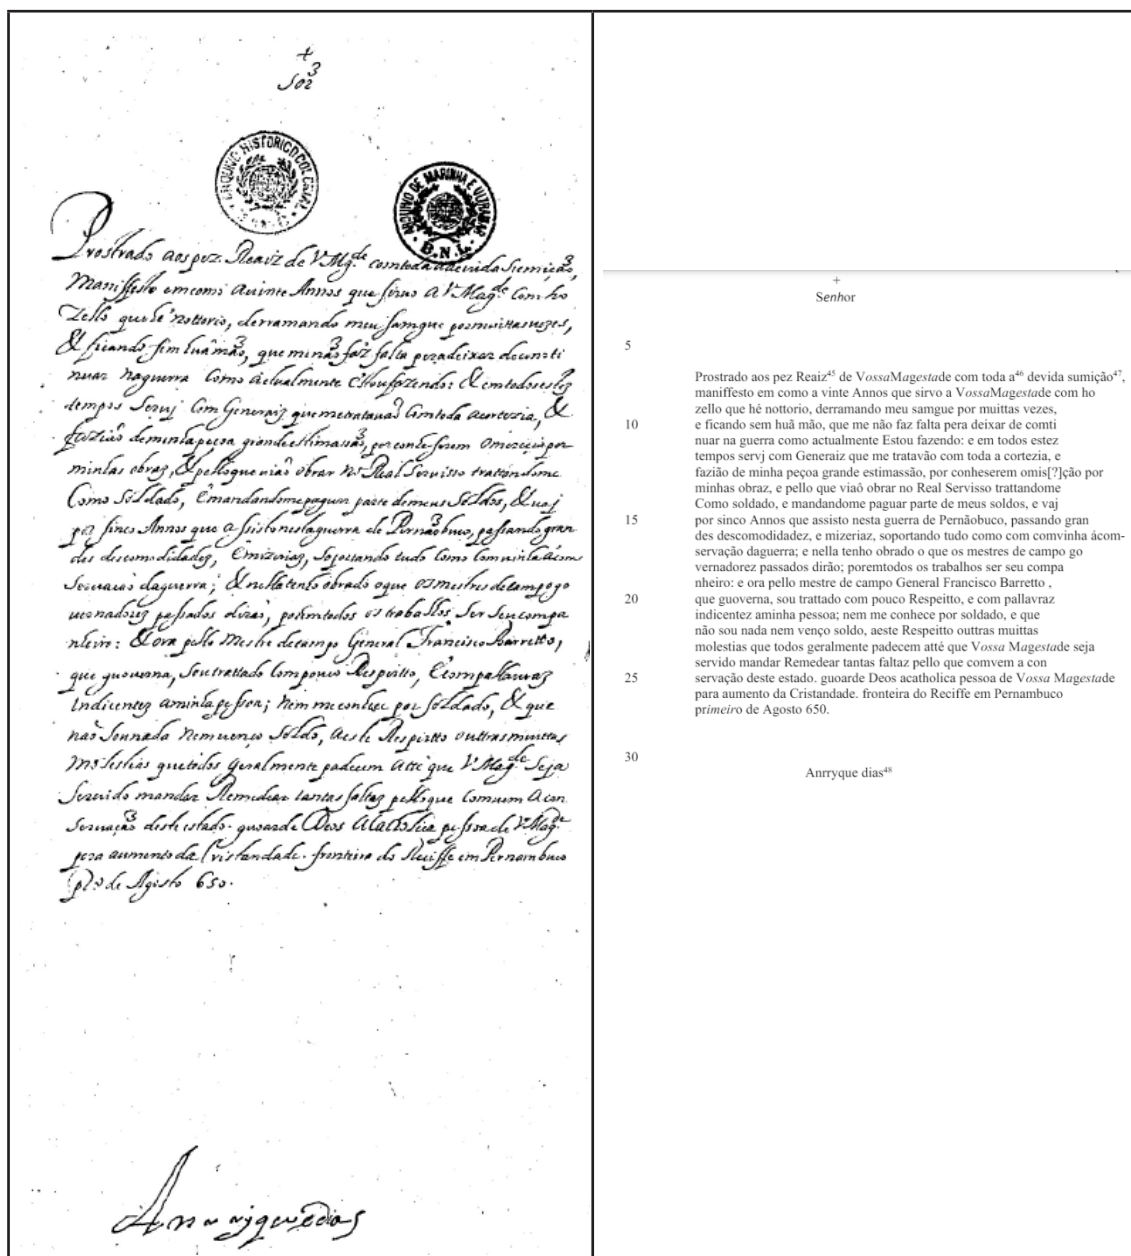 +
Sor
ARQUIVO HISTORICO COLONIAL
ARQUIVO DE MARINHA E ULTRAMAR
B.N.L.
Prostrado aos pez Reaiz de V Mg.de com toda a devida sumição,
Maniffesto em como avinte Annos que sirvo a V Mag.de com ho
Zello que hé nottorio, derramando meu samgue por muittas vezes,
& ficando sem huã mão, que me não faz falta pera deixar de conti
nuar na guerra Como actualmente Estou fazendo: & em todos estez
tempos servj Com Generaiz que me tratavão Com toda a cortezia, &
fazião de minha peçoa grande estimassão, por conheserem
minhas obraz, & pello que viaõ obrar no Real Servisso trattandome
Como soldado, E mandandome paguar parte de meus soldos, & vaj
por sinco Annos que assisto nesta guerra de Pernãobuco, passando gran
des descomodidadez, E mizeriaz, soportando tudo Como Comvinha ácom
servação daguerra; & nella tenho obrado o que os mestres de campo go
vernadorez passados dirão, porem todos os trabalhos Ser Seu compa
nheiro: & ora pello Mestre de campo General Francisco Barretto,
que guoverna, sou trattado Com pouco Respeitto, E com pallavraz
Indicentez aminha pessoa; nem me conhece por soldado, & que
não sou nada nem venço soldo, aeste Respeitto outtras muittas
molestias que todos geralmente padecem atté que V Mag.de Seja
Servido mandar Remedear tantas faltaz pello que Comvem a Con
Servação deste estado. guoarde Deos a Catholica pessoa de V Mag.de
pera aumento da Cristandade. fronteira do Reciffe em Pernambuco
pr.o de Agosto 650.
Anrryque dias
+
Senhor
5
Prostrado aos pez Reaiz45 de VossaMagestade com toda a46 devida sumição47,
maniffesto em como a vinte Annos que sirvo a VossaMagestade com ho
zello que hé nottorio, derramando meu samgue por muittas vezes,
10 e ficando sem huã mão, que me não faz falta pera deixar de comti
nuar na guerra como actualmente Estou fazendo: e em todos estez
tempos servj com Generaiz que me tratavão com toda a cortezia, e
fazião de minha peçoa grande estimassão, por conheserem omis[?]ção por
minhas obraz, e pello que viaõ obrar no Real Servisso trattandome
Como soldado, e mandandome paguar parte de meus soldos, e vaj
15 por sinco Annos que assisto nesta guerra de Pernãobuco, passando gran
des descomodidadez, e mizeriaz, soportando tudo como com comvinha ácom-
servação daguerra; e nella tenho obrado o que os mestres de campo go
vernadorez passados dirão; poremtodos os trabalhos ser seu compa
nheiro: e ora pello mestre de campo General Francisco Barretto ,
20 que guoverna, sou trattado com pouco Respeitto, e com pallavraz
indicentez aminha pessoa; nem me conhece por soldado, e que
não sou nada nem venço soldo, aeste Respeitto outtras muittas
molestias que todos geralmente padecem atté que Vossa Magestade seja
servido mandar Remedear tantas faltaz pello que comvem a con
25 servação deste estado. guoarde Deos acatholica pessoa de Vossa Magestade
para aumento da Cristandade. fronteira do Reciffe em Pernambuco
primeiro de Agosto 650.
30
Anrryque dias48